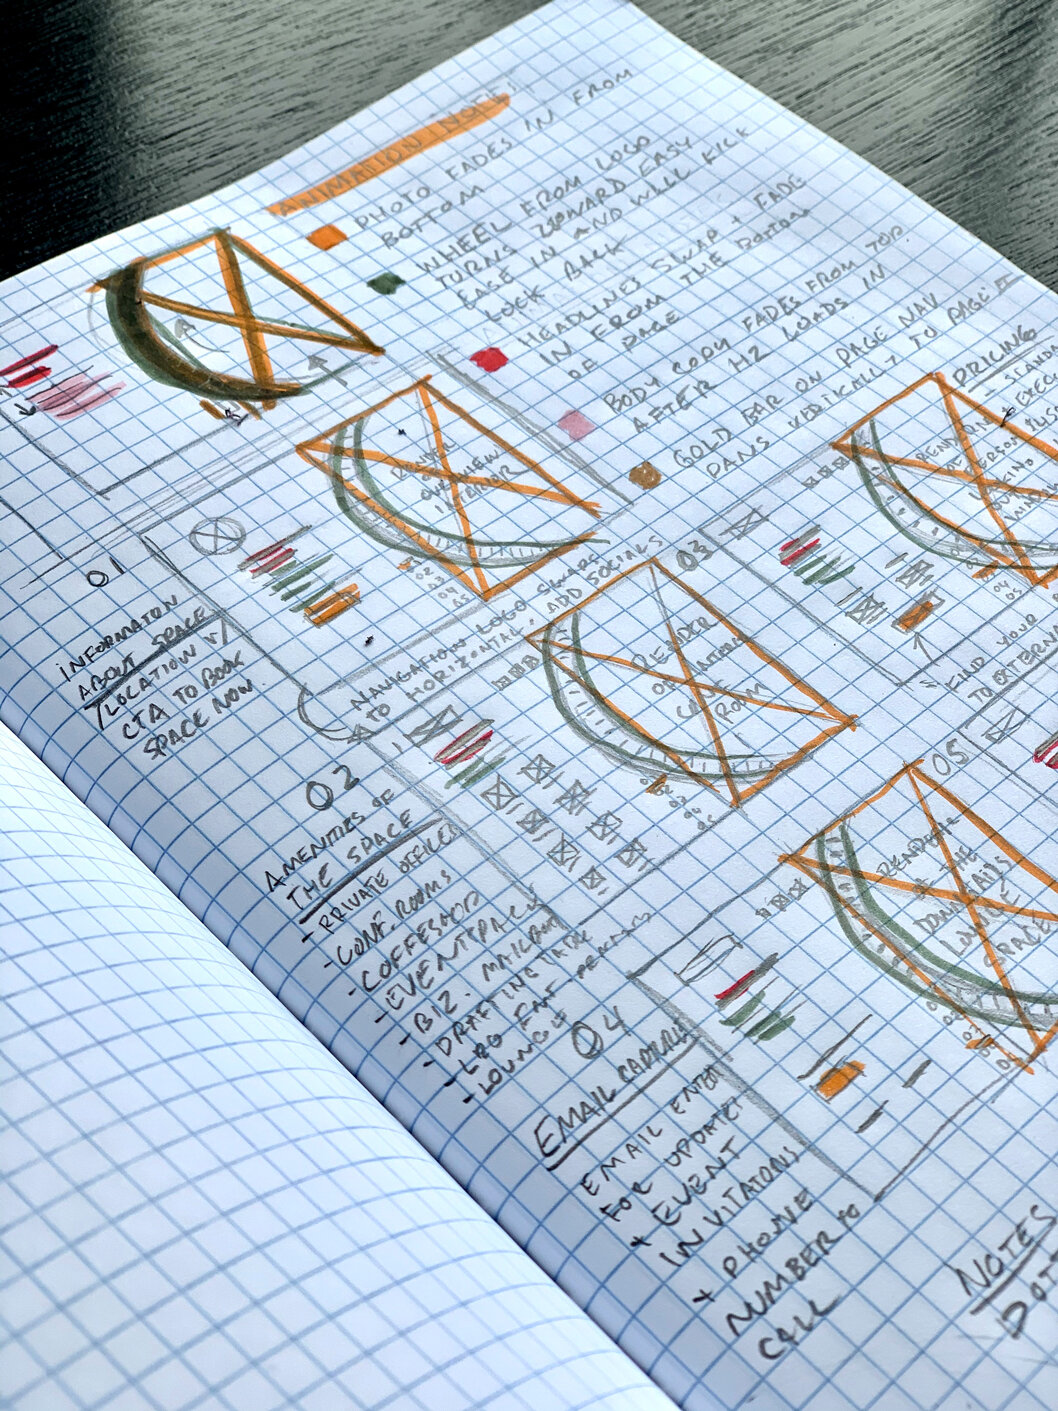 ANIMATION NOTES:
PHOTO FADES IN FROM
BOTTOM
WHEEL FROM LOGO
TURNS TOWARD EASY
EASE IN AND WILL KICK
LOCK BACK
HEADLINES SWAP + FADE
IN FROM THE BOTTOM
OF PAGE
BODY COPY FADES FROM TOP
AFTER H2 LOADS IN
GOLD BAR ON PAGE NAV
PANS VERTICALLY TO PAGE
01
INFORMATION
ABOUT SPACE
/LOCATION W/
CTA TO BOOK
SPACE NOW
RENDER
OVERVIEW
02
03
04
05
NAVIGATION LOGO SWAPS
TO HORIZONTAL. ADD SOCIALS
02
AMENITIES OF
THE SPACE
- PRIVATE OFFICES
- CONF. ROOMS
- COFFESHOP
- EVENT SPACE
- BIZ. MAILBOX
- DRAFTING TABLE
- LRG FMT. PRINTERS
- LOUNGE
RENDER
OR INTERIOR
ROOM
03
PRICING
RENDER
04
05
"FIND YOUR
TO EXTERN
04
EMAIL CAPTURE
EMAIL ENTER
FOR UPDATE
+ EVENT
INVITATIONS
+ PHONE
NUMBER TO
CALL
05
RENDER
OF THE
DOWNSTAIRS
LOUNGE
SPACE
NOTES
DOTT